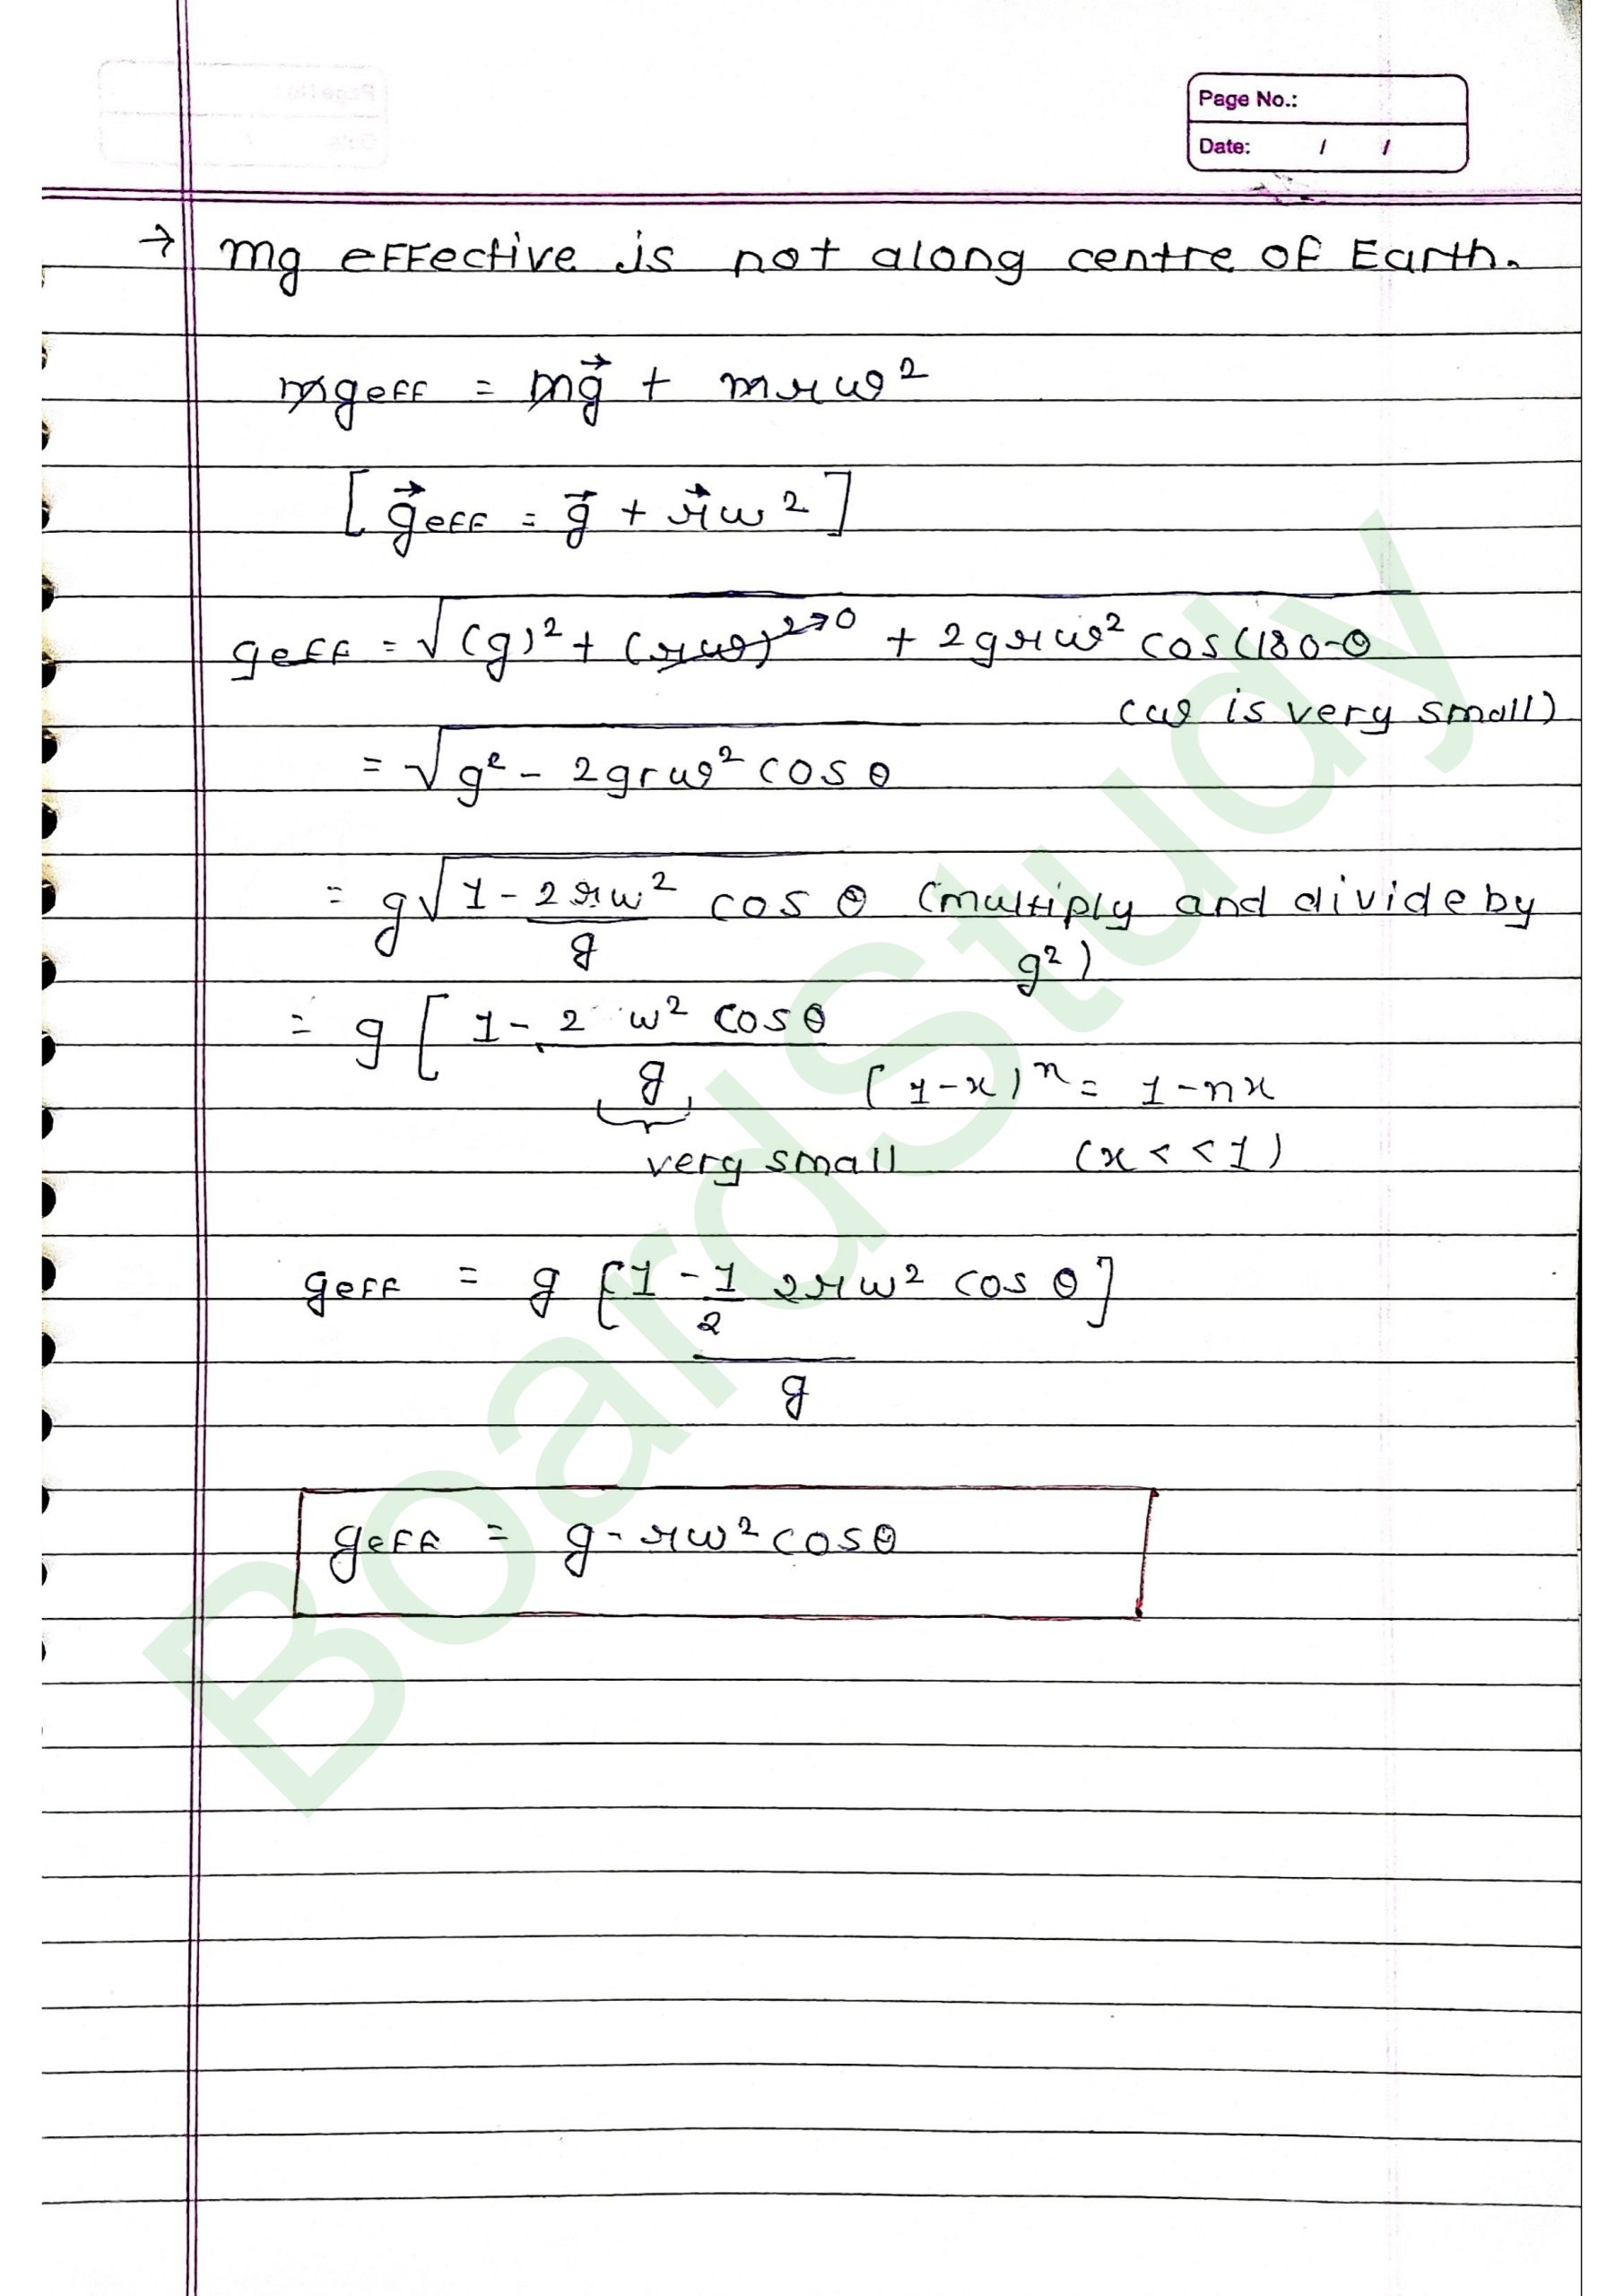 Page No.:
Date: / /
→ mg effective is not along centre of Earth.
mgeff = mg⃗ + mrω²
[g⃗eff = g⃗ + r⃗ω²]
geff = √(g)² + (rω)²→0 + 2grω² cos(180-θ
(ω is very small)
= √g² - 2grω² cos θ
= g√1 - 2rω²/g cos θ (multiply and divide by
g²)
= g [ 1 - 2 ω² cosθ / g
(1-x)ⁿ = 1-nx
very small (x < < 1)
geff = g [1 - 1/2 2rω² cos θ] / g
geff = g - rω² cosθ
BoardStudy